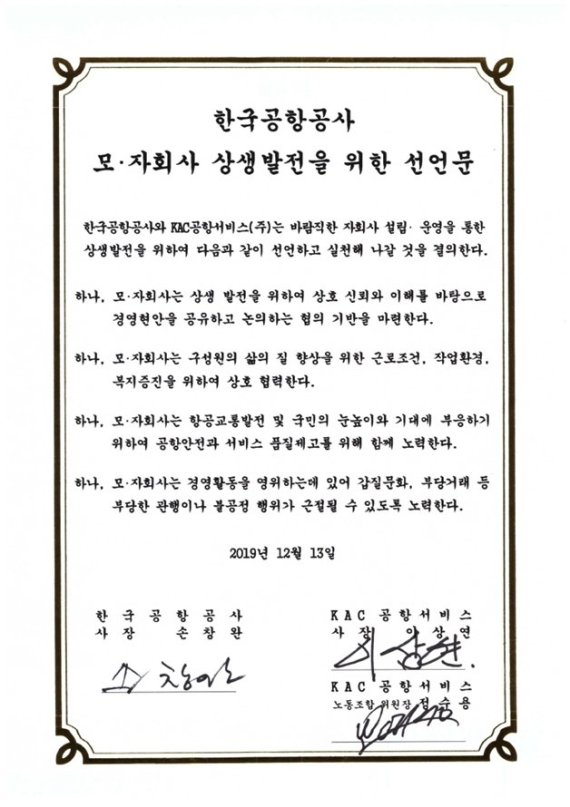 한국공항공사
모·자회사 상생발전을 위한 선언문
한국공항공사와 KAC공항서비스(주)는 바람직한 자회사 설립·운영을 통한
상생발전을 위하여 다음과 같이 선언하고 실천해 나갈 것을 결의한다.
하나, 모·자회사는 상생 발전을 위하여 상호 신뢰와 이해를 바탕으로
경영현안을 공유하고 논의하는 협의 기반을 마련한다.
하나, 모·자회사는 구성원의 삶의 질 향상을 위한 근로조건, 작업환경,
복지증진을 위하여 상호 협력한다.
하나, 모·자회사는 항공교통발전 및 국민의 눈높이와 기대에 부응하기
위하여 공항안전과 서비스 품질제고를 위해 함께 노력한다.
하나, 모·자회사는 경영활동을 영위하는데 있어 갑질문화, 부당거래 등
부당한 관행이나 불공정 행위가 근절될 수 있도록 노력한다.
2019년 12월 13일
한국공항공사
사장 손창완
손창완
KAC공항서비스
사장 이상연
이상연.
KAC공항서비스
노동조합 위원장 정수용